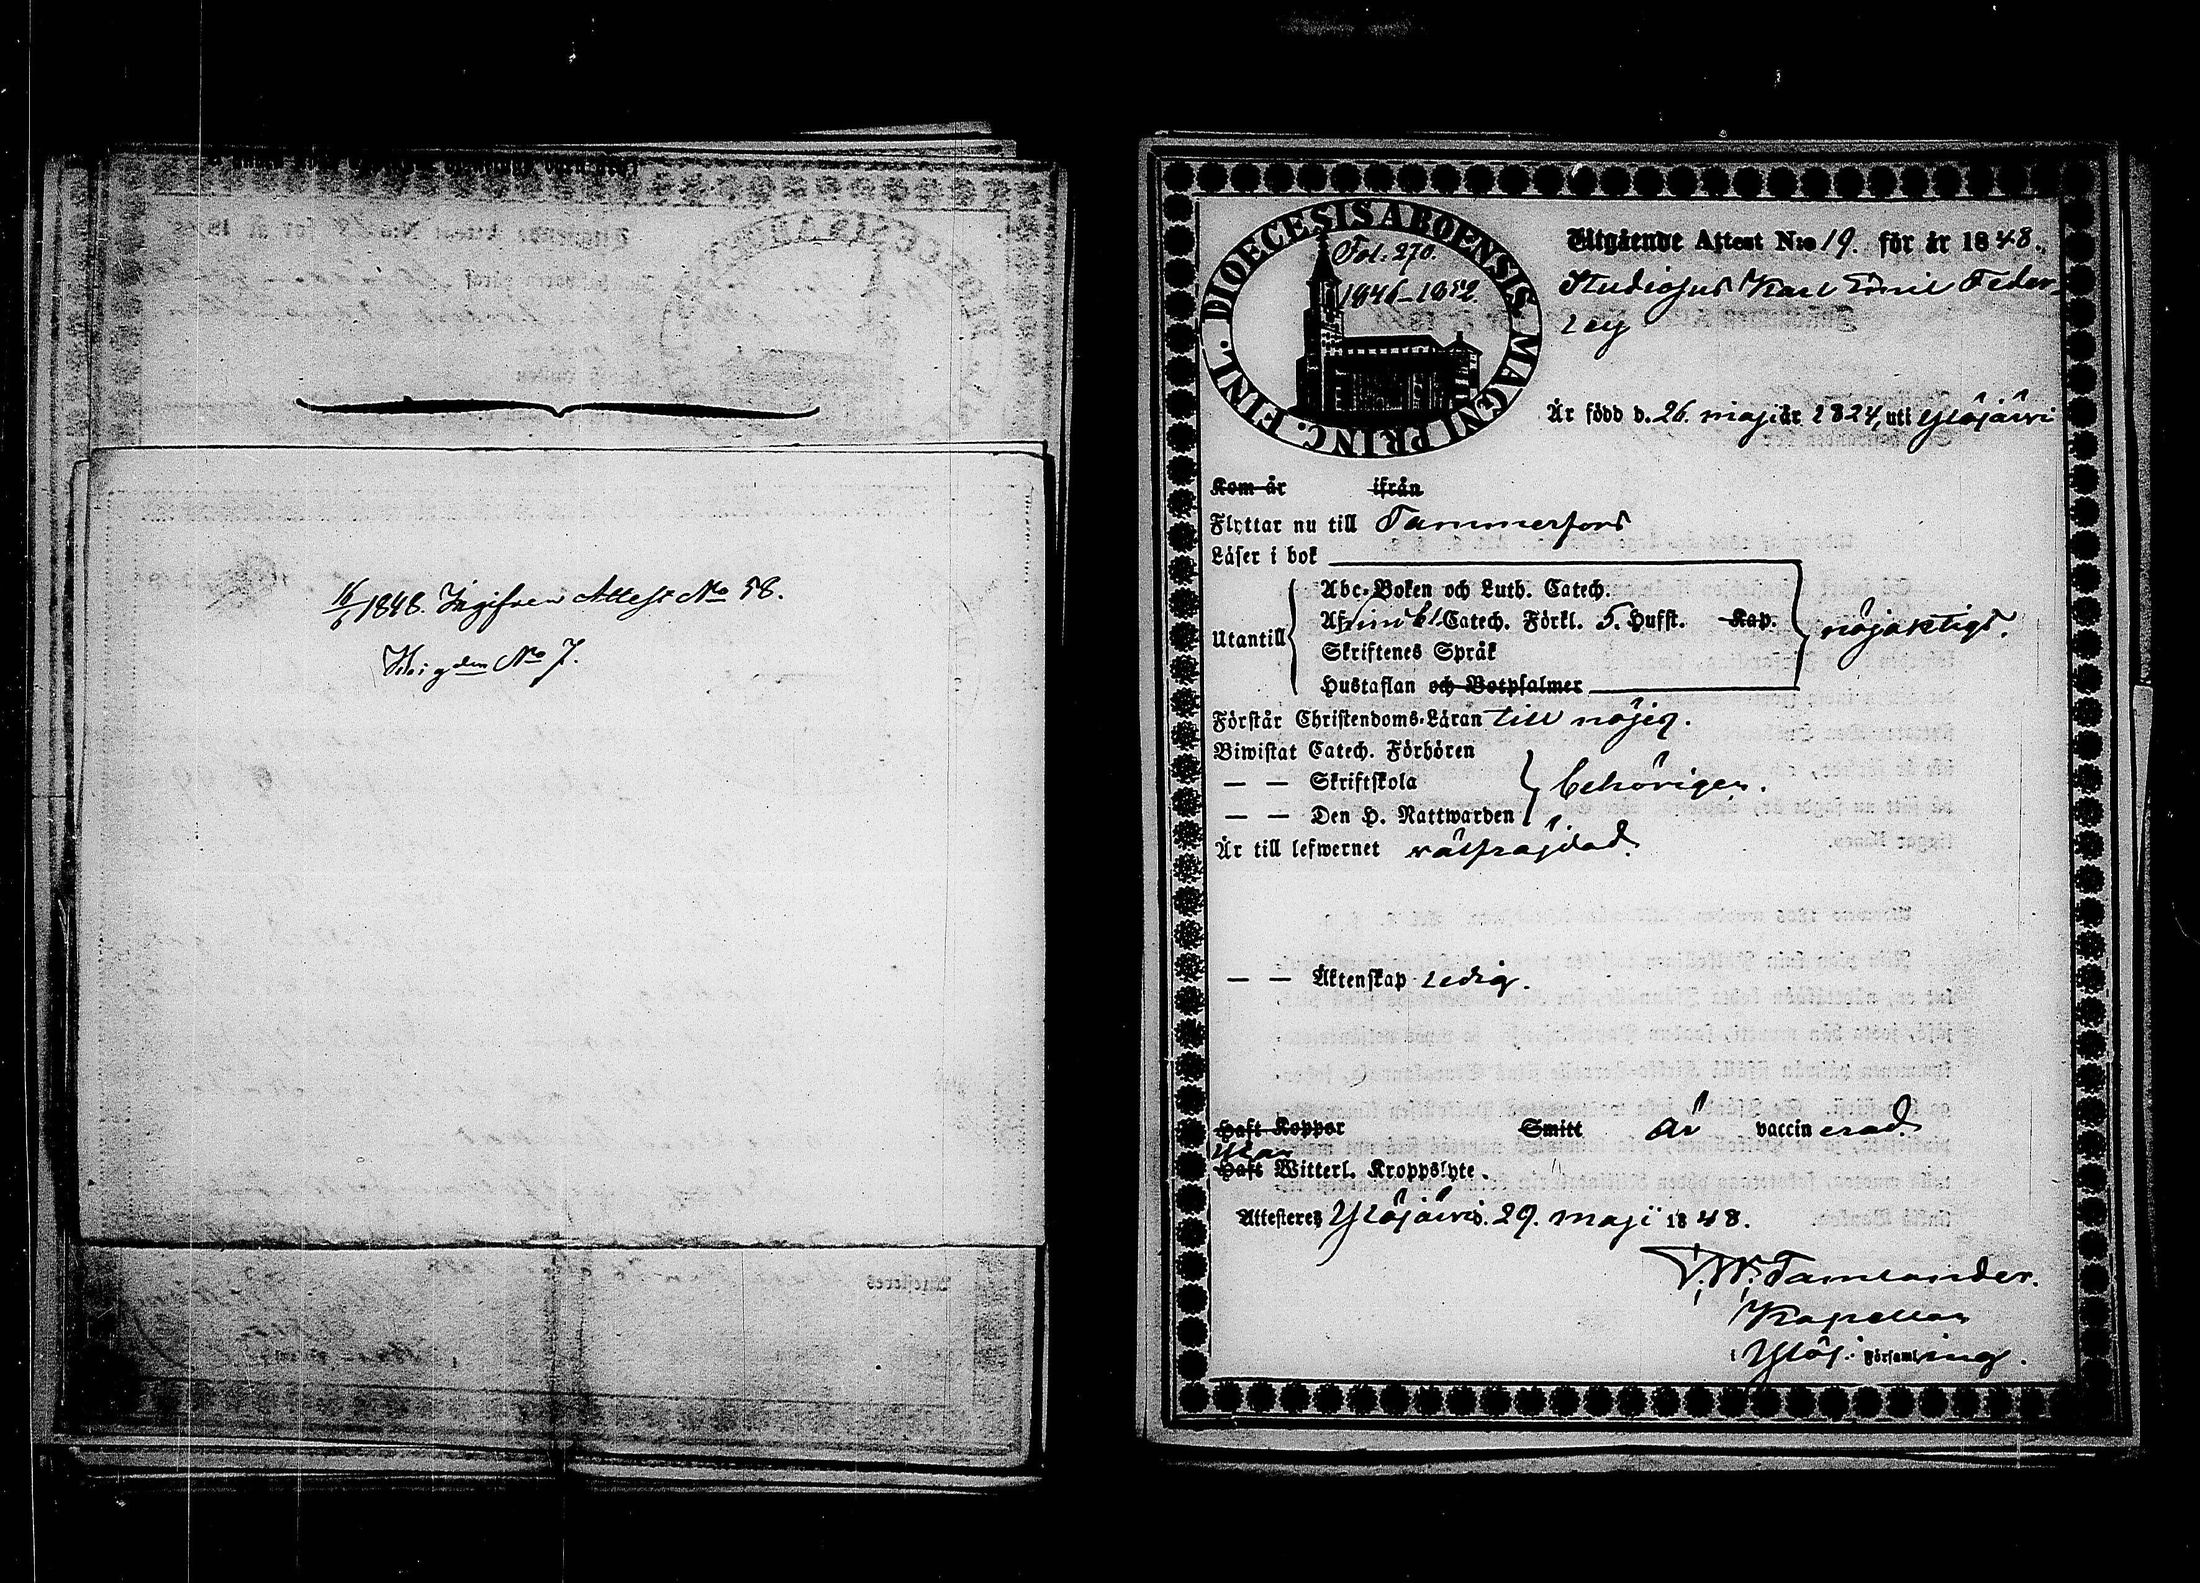 16/6 1848. Ingifven Attest No 58.
No 7.
DIOECESIS ABOENSIS MAGNI PRINC. FINL.
Fol. 270.
1846–1852.
Utgående Attest N:o 19. för år 1848.
Studiosus Karl Emil Feder-
ley
Är född d. 26. maji år 1824, uti Ylöjärvi
Kom år ifrån
Flyttar nu till Tammerfors
Läser i bok
Utantill
Abc-Boken och Luth. Catech.
Catech. Förkl. 5. Hufst. Kap.
Skriftenes Språk
Hustaflan och Botpsalmer
nöjaktigt.
Förstår Christendoms-Läran till nöjes.
Biwistat Catech. Förhören
— — Skriftskola
— — Den H. Nattwarden
behörigen.
Är till lefwernet välfräjdad.
— — Äktenskap ledig.
Haft Koppor Smitt är vaccinerad.
Utan
Haft Witterl. Kroppslyte.
Attesteres Ylöjärvi d. 29. maji 1848.
F. W. Tamlander.
Kapellan
i Ylöj. Församling.
Attesteres